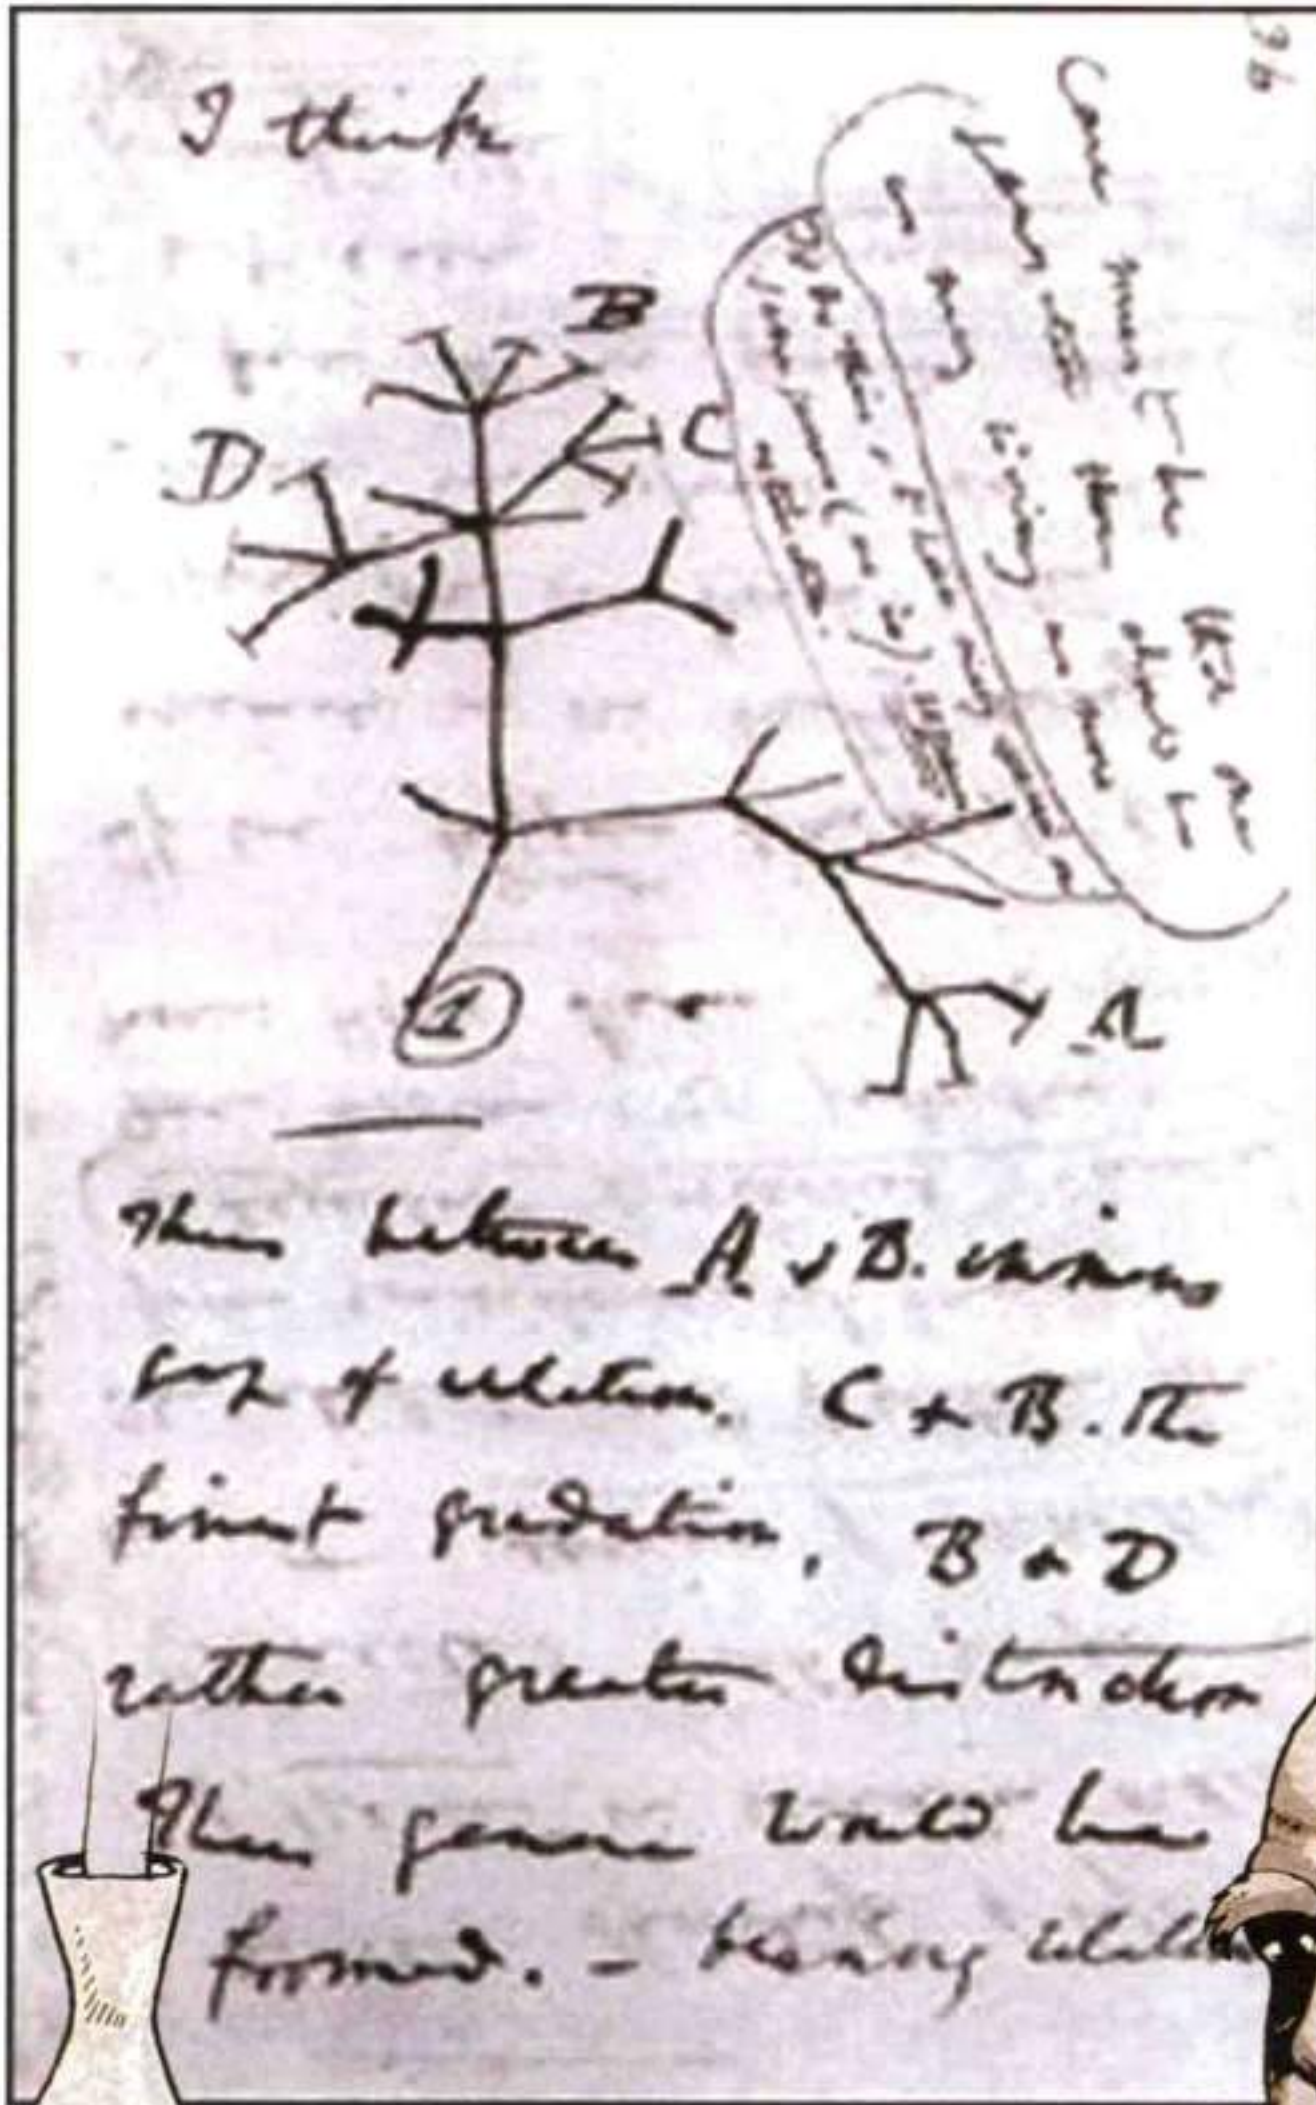 36
I think
Case must be that one
generation then should be
as many living as now
To do this & to have many species in
same genus (as is). requires
extinction.
B
D
C
A
1
Thus between A & B. immense
gap of relation. C & B. The
finest gradation, B & D
rather greater distinction
Thus genera would be
formed. – bearing relation